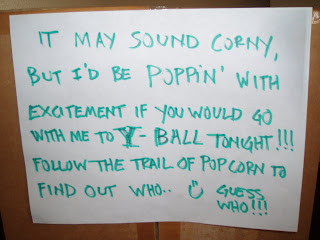 IT MAY SOUND CORNY,
BUT I'D BE POPPIN' WITH
EXCITEMENT IF YOU WOULD GO
WITH ME TO Y-BALL TONIGHT!!!
FOLLOW THE TRAIL OF POPCORN TO
FIND OUT WHO.. GUESS
WHO!!!